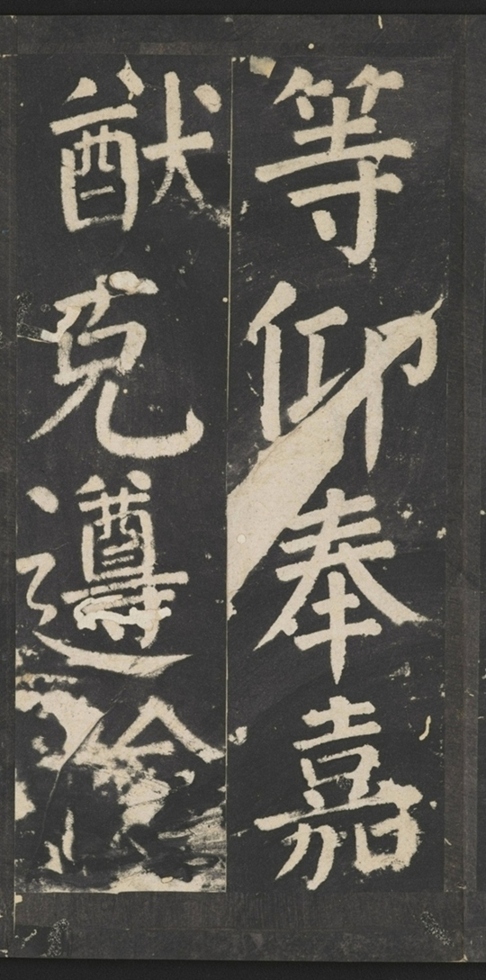 等仰奉嘉
猷克遵